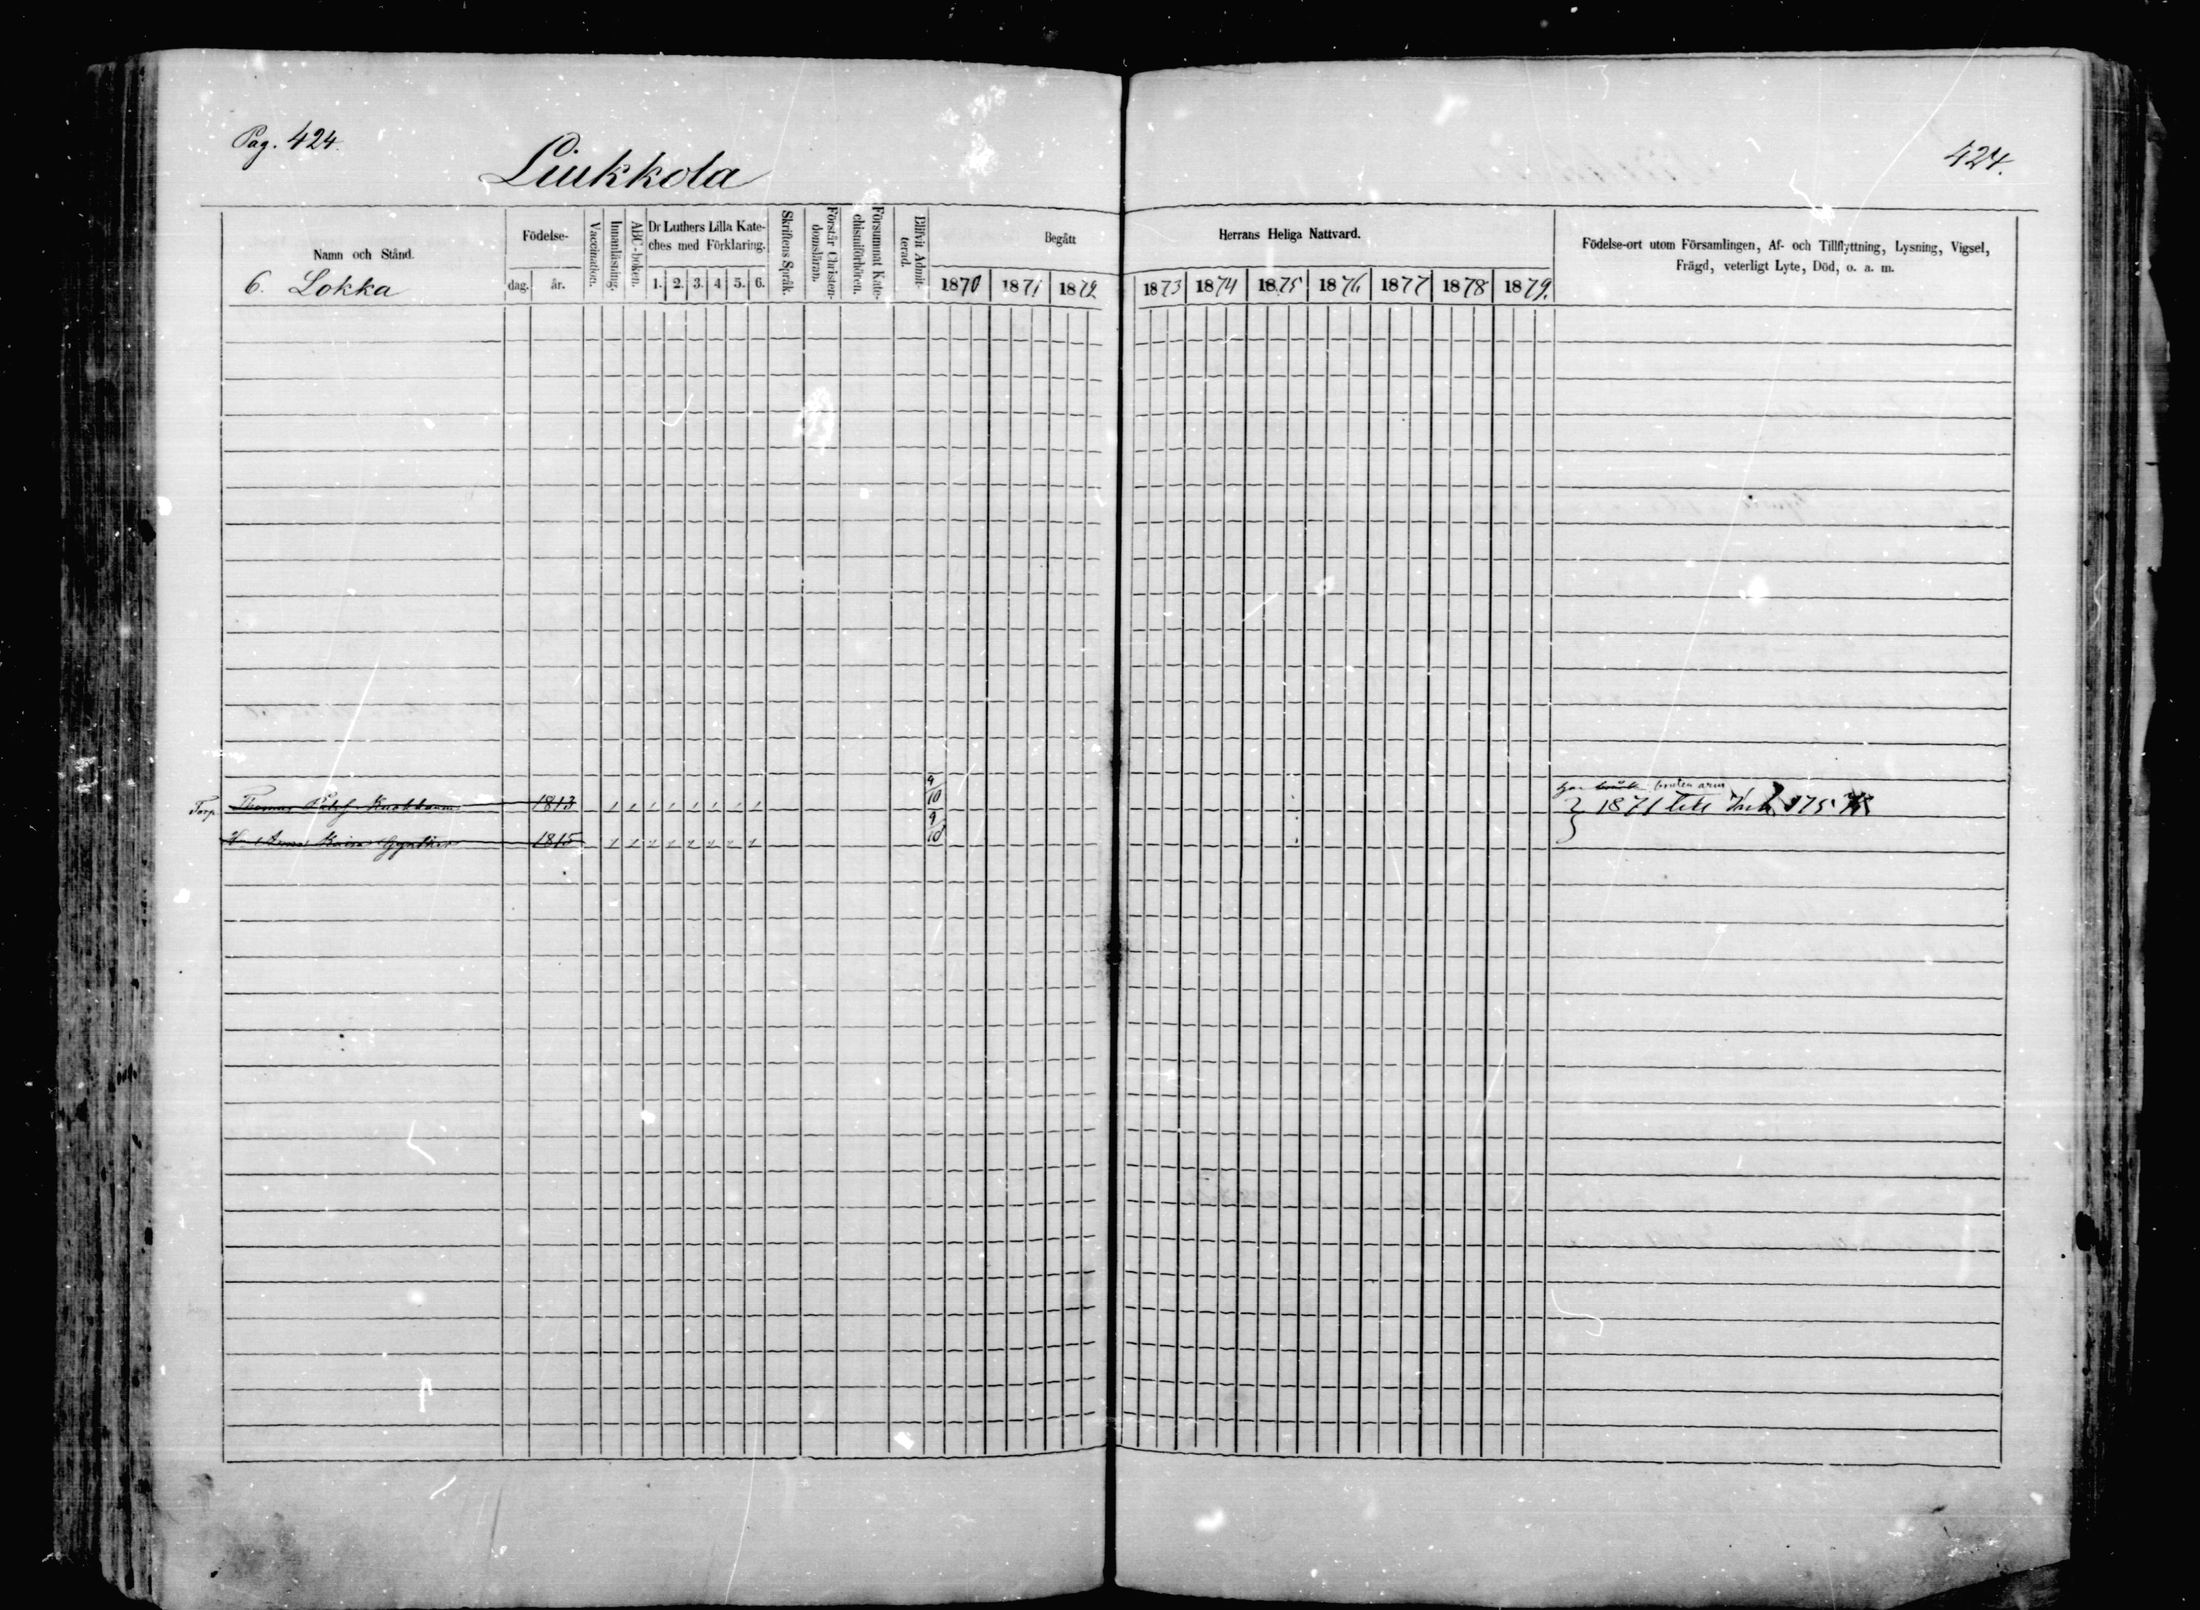 Pag. 424.
Liukkola
424.
Namn och Stånd.
6. Lokka
Födelse-
dag. år.
Vaccination.
Innanläsning.
ABC-boken.
Dr Luthers Lilla Kate-
ches med Förklaring.
1. 2. 3. 4 5. 6.
Skriftens Språk.
Förstår Christen-
domsläran.
Försummat Kate-
chismiförhören.
Blifvit Admit-
terad.
Begått
Herrans Heliga Nattvard.
1870 1871 1872 1873 1874 1875 1876 1877 1878 1879.
Födelse-ort utom Församlingen, Af- och Tillflyttning, Lysning, Vigsel,
Frägd, veterligt Lyte, Död, o. a. m.
bruten arm
Torp. Thomas 1813 1 1 1 1 1 1 1 1 9/10 1871
Kaisa 1815 1 1 1 1 1 1 1 1 9/10